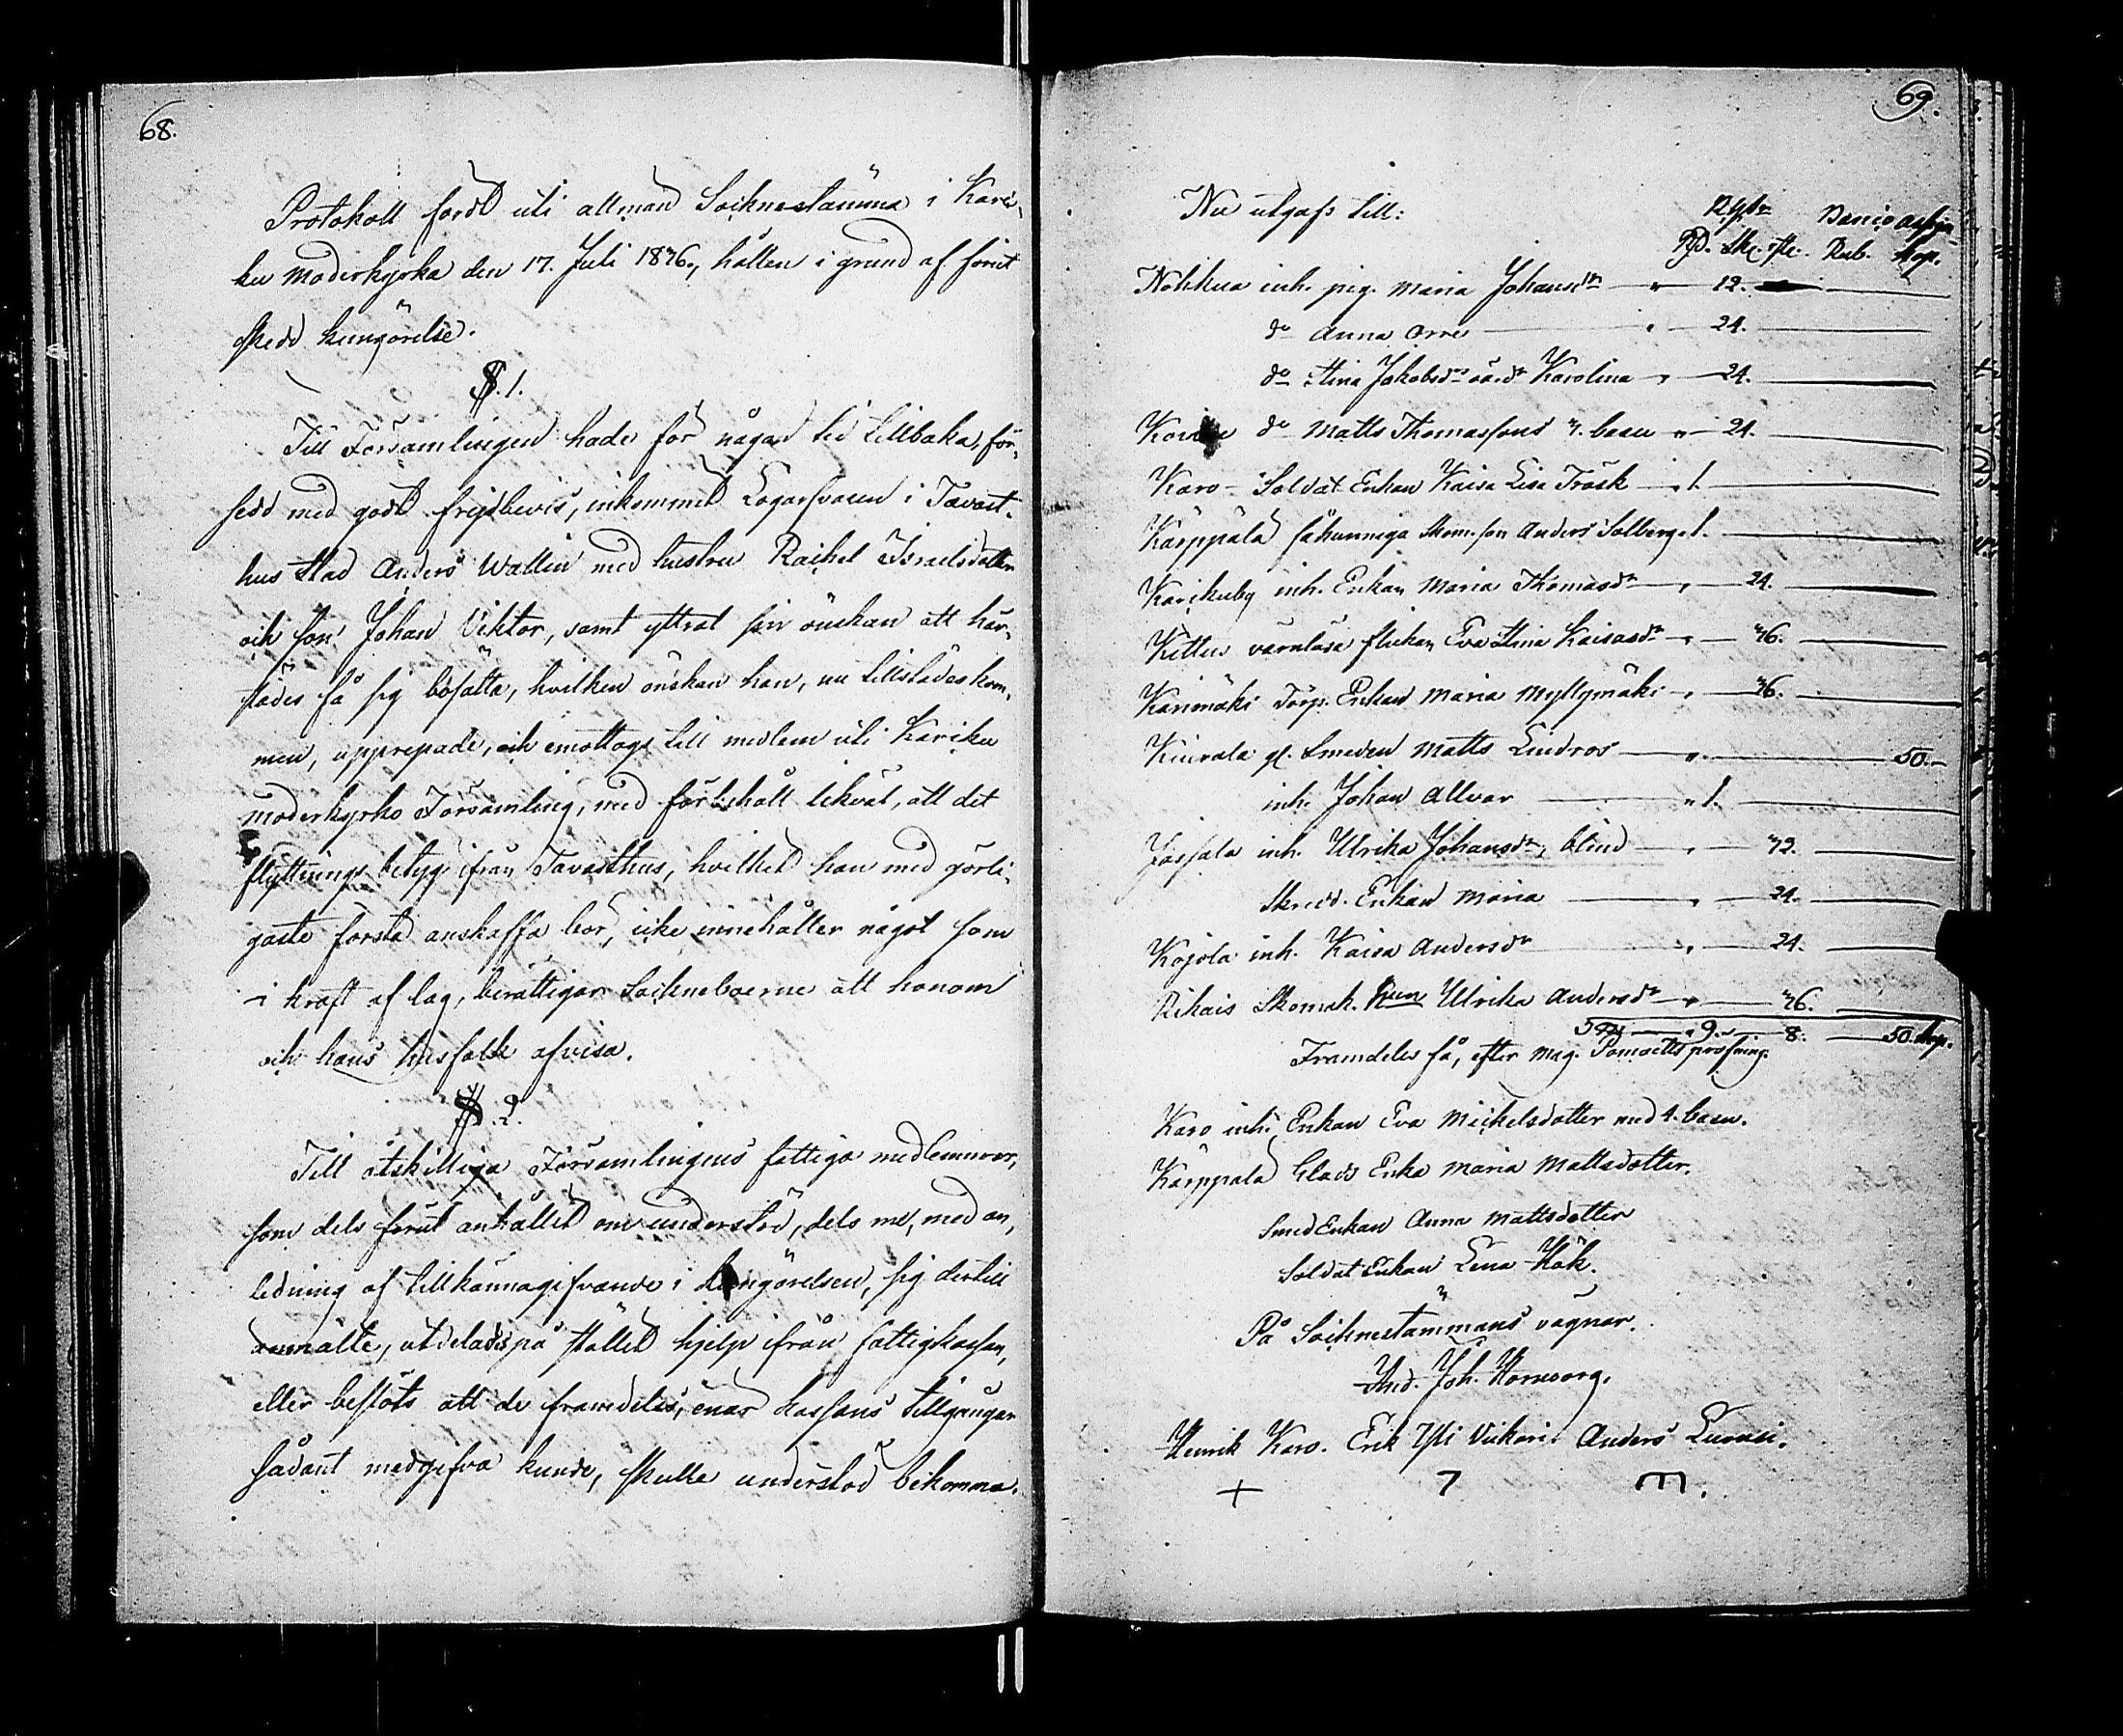 68.
Protokoll fördt uti allmän Socknestämma i Kari-
ku moderkyrka den 17. Juli 1836., hållen i grund af förut
skedd kungörelse.
§. 1.
Till Församlingen hade för någon tid tillbaka, för-
sedd med godt frejdbevis, inkommit Logarfvaren i Tavast-
hus stad Anders Wallin med hustru Rachel Israelsdotter
och son Johan Viktor, samt yttrat sin önskan att här-
städes få sig bosätta, hvilken önskan han, nu tillstädeskom-
men, upprepade, och emottogs till medlem uti Kariku
moderkyrko Församling, med förbehåll likväl, att det
flyttningsbetyg ifrån Tavasthus, hvilket han med görli-
gaste första anskaffa bör, icke innehåller något som
i kraft af lag, berättigar Sockneboerne att honom
och hans husfolk afvisa.
§. 2.
Till åtskilliga Församlingens fattiga medlemmar,
som dels förut anhållit om understöd, dels nu, med an-
ledning af tillkännagifvande i kungörelsen, sig dertill
anmälte, utdelades på stället hjelp ifrån fattigkassan,
eller beslöts att de framdeles, enär kassans tillgångar
sådant medgifva kunde, skulle understöd bekomma.
69.
Nu utgafs till: Rgds Banco assign
Rd. Sk. rst. Rub. Kop.
Nohkua inh. pig. Maria Johansdr " 12.
do Anna Orre " 24.
do Stina Jakobsdrs dr Karolina " 24.
do Matts Thomassons 3. barn " 24.
Karo Soldat Enkan Kaisa Lisa Träsk " 1.
Karppala fåkunniga Skom. son Anders Solberg " 1.
Karikuby inh. Enkan Maria Thomasdr " 24.
Kittus värnlösa flickan Eva Stina Kaisasdr " 36.
Karimäki Torp. Enkan Maria Myllymäki " 36.
Kiurala gl. Smeden Matts Lindros " 50.
inh. Johan Allvar " 1.
Jassala inh. Ulrika Johansdr, blind " 32.
Skredd. Enkan Maria " 24.
Kojola inh. Kaisa Andersdr " 24.
Rikais Skomak. Ulrika Andersdr " 36.
9. 8. 50 kop.
Framdeles få, efter Mag. Pomoells pröfning.
Karo inh. Enkan Eva Michelsdotter med 4. barn.
Karppala Enka Maria Mattsdotter.
Smed Enkan Anna Mattsdotter
Soldat Enkan Lena Hök.
På Socknestämmans vägnar.
And. Joh. Hornborg.
Henrik Karo. Erik Yli Vickari. Anders Lunni.
+ 7 m.